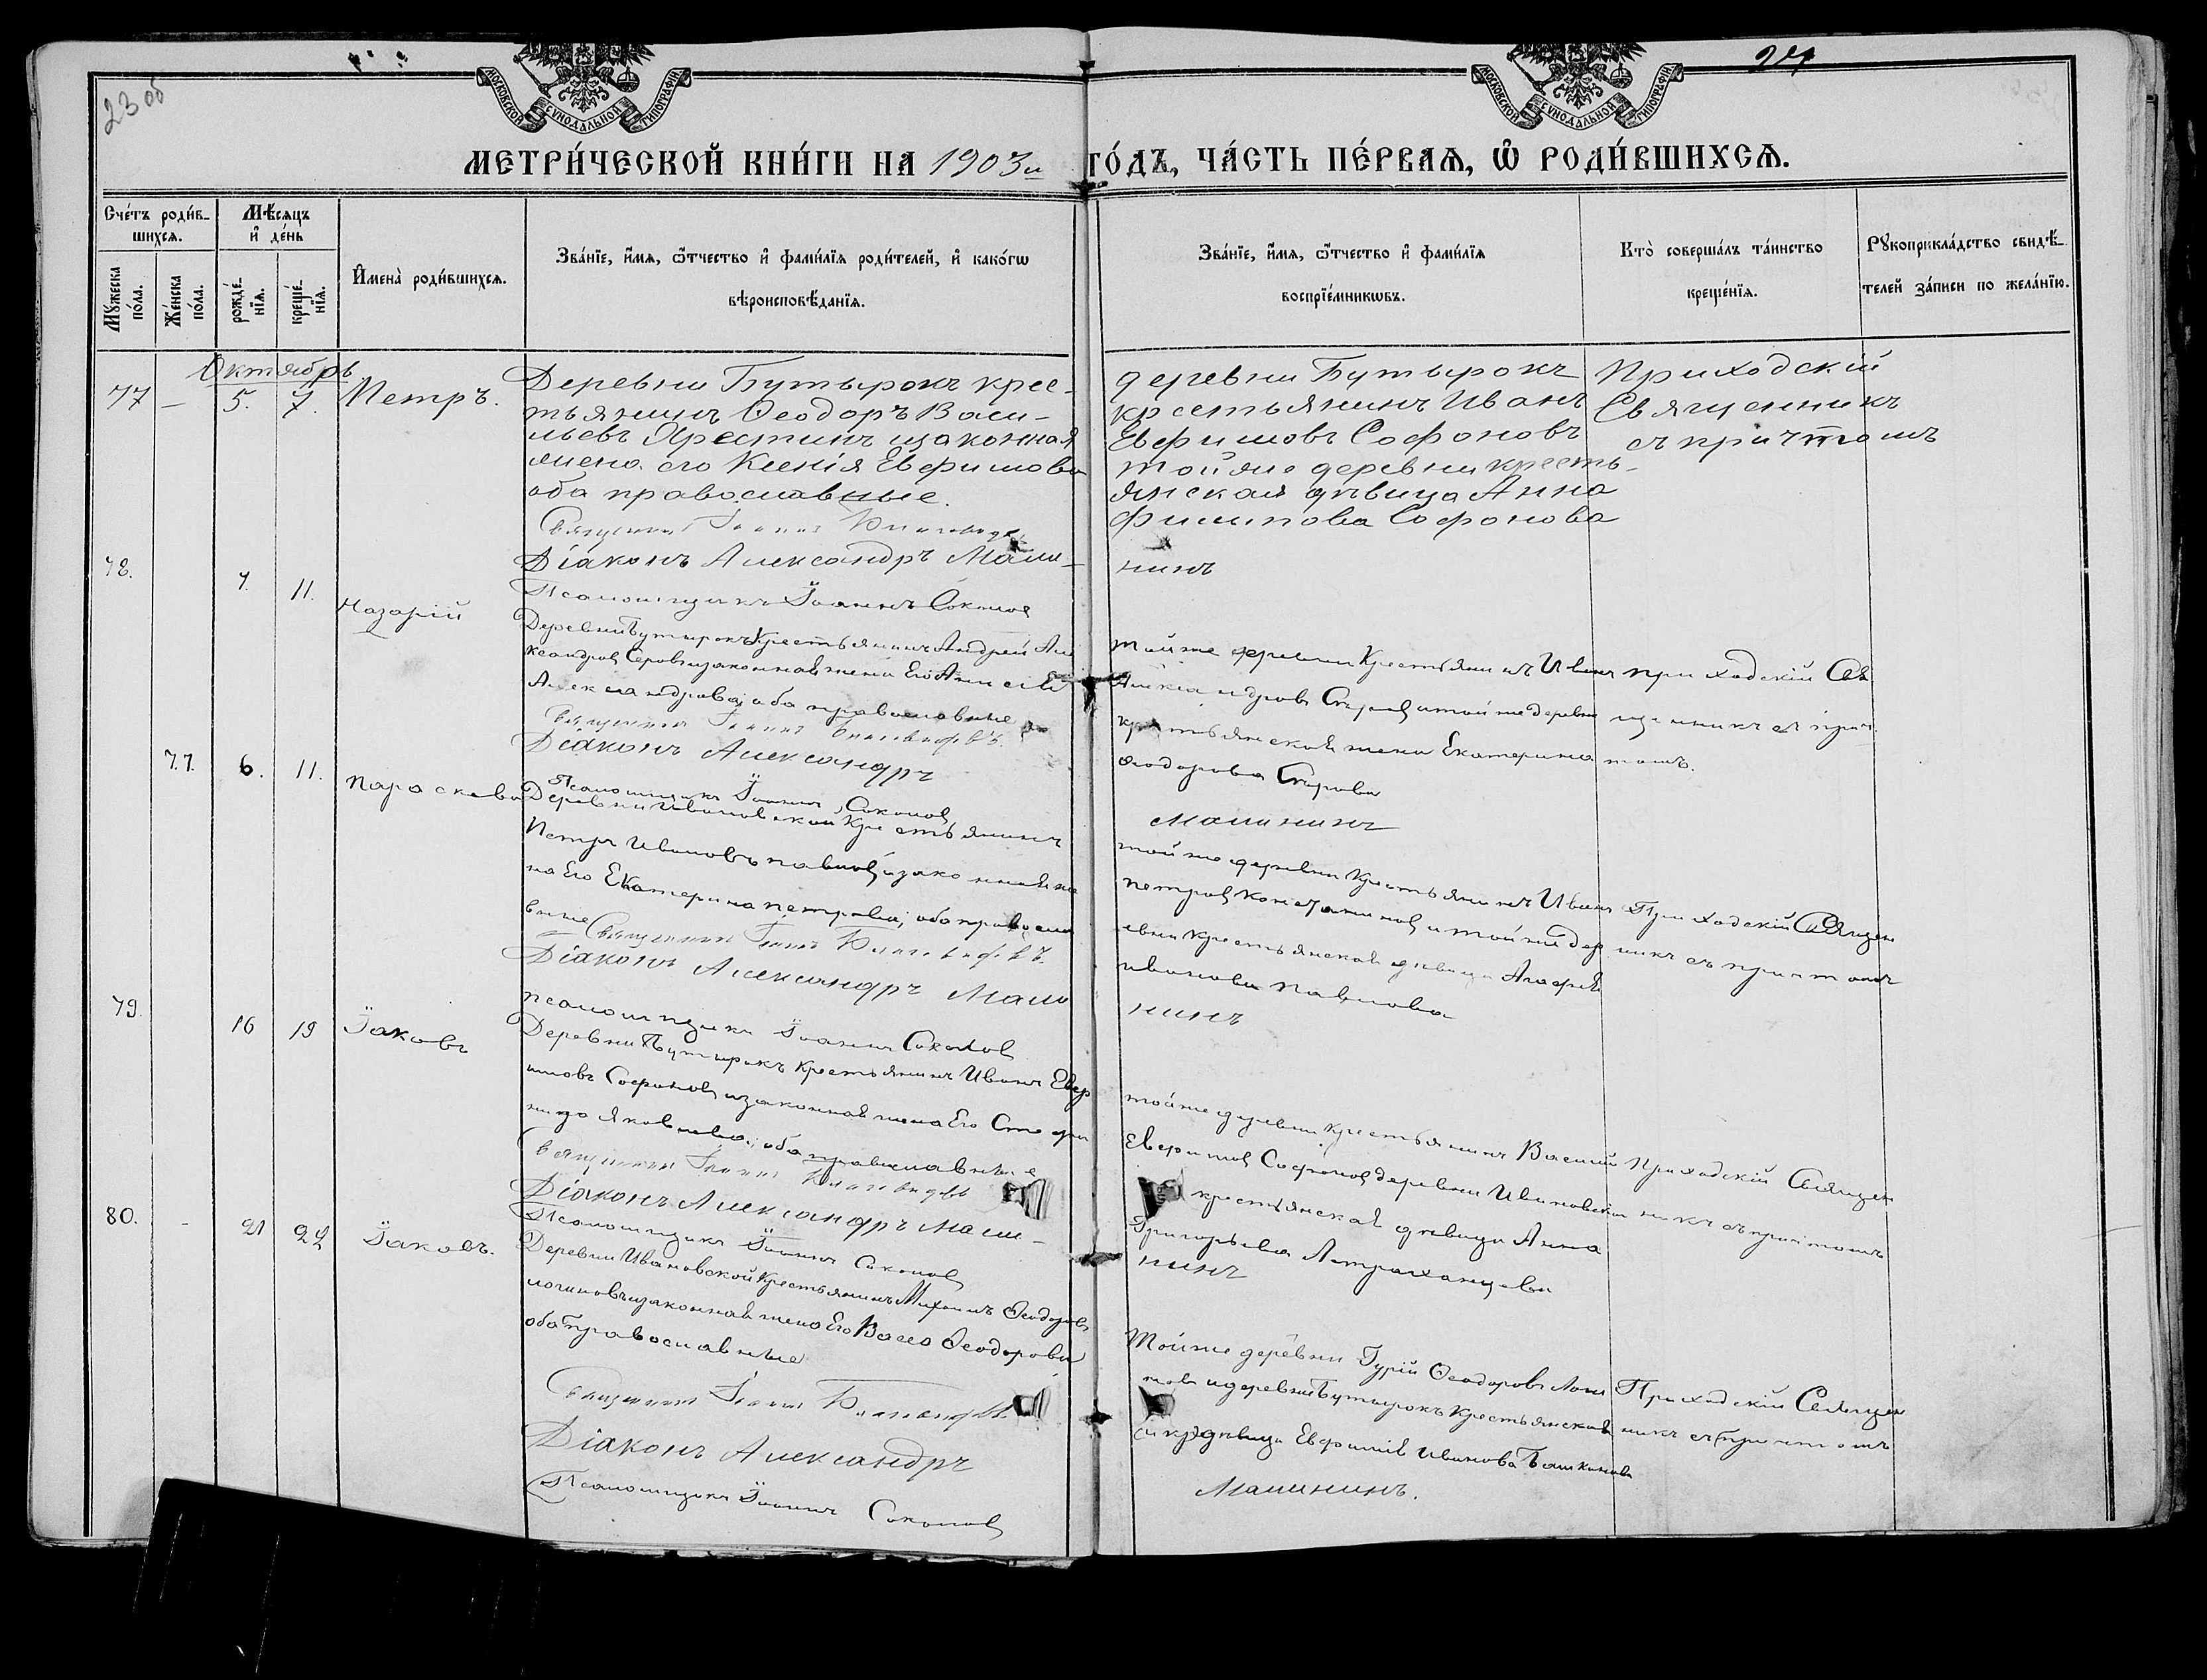 23 об
24
МОСКОВСКОЙ СѴНОДАЛЬНОЙ ТИПОГРАФІИ
МОСКОВСКОЙ СѴНОДАЛЬНОЙ ТИПОГРАФІИ
МЕТРИ́ЧЕСКОЙ КНИ́ГИ НА 1903й ГО́ДЪ, ЧА́СТЬ ПЕ́РВАѦ, Ѡ҆ РОДИ́ВШИХСѦ.
Сче́тъ роди́в-
шихсѧ.
Мѣ́сяцъ
и҆ де́нь
Мꙋ́жеска
по́ла.
Же́нска
по́ла.
рожде́-
нїѧ.
креще́-
нїѧ.
И҆мена̀ роди́вшихсѧ.
Зва́нїе, и҆́мѧ, ѻ҆́тчество и҆ фами́лїѧ роди́телей, и҆ како́гѡ
вѣроисповѣ́данїѧ.
Зва́нїе, и҆́мѧ, ѻ҆́тчество и҆ фами́лїѧ
воспрїе́мникѡвъ.
Кто̀ соверша́лъ та́инство
креще́нїѧ.
Рꙋкоприкла́дство свидѣ́-
телей за́писи по жела́нїю.
Октябрь
77 — 5. 7. Петръ.
Деревни Бутырокъ крес-
тьянинъ Ѳеодоръ Васи-
льевъ Арестинъ и законная
жена его Ксенія Евфимова
оба православные.
Священникъ Іоаннъ
Діаконъ Александръ Мали-
Псаломщикъ Іоаннъ Соколов
деревни Бутырокъ
крестьянинъ Иванъ
Евфимовъ Софоновъ
той же деревни кресть-
янская дѣвица Анна
Филипова Софонова
нинъ
Приходскій
Священникъ
съ причтомъ
78. 7. 11. Назарій
Деревни Бутырокъ Крестьянинъ Андрей Але
ксандров Серовъ и законная жена Его Анисія
Александрова; оба православные
Священникъ Іоаннъ
Діаконъ Александръ
Псаломщикъ Іоаннъ Соколов
той же деревни Крестьянинъ Иванъ
Александровъ Серов и той же деревни
крестьянская жена Екатерина
Ѳеодорова Серова
Малининъ
приходскій Свя
щенникъ съ прич
томъ.
77. 6. 11. Параскева
Деревни Ивановской Крестьянинъ
Петръ Ивановъ Павлов и законная же
на Его Екатерина петрова; оба правосла
вные Священникъ Іоаннъ
Діаконъ Александръ Мали
псаломщикъ Іоаннъ Соколов
той же деревни Крестьянинъ Иванъ
петров и той же дер
евни Крестьянская дѣвица Агафія
иванова Павлова
нинъ
Приходскій Священ
никъ съ причтомъ
79. 16 19 Іаковъ
Деревни Бутырокъ Крестьянинъ Иванъ Евф
имовъ Софонов и законная жена Его Степа
нида Яковлева; оба православные
Священникъ Іоаннъ
Діаконъ Александръ Мали-
Псаломщикъ Іоаннъ Соколов
той же деревни Крестьянинъ Василій
Евфимов Софонов деревни Ивановской
крестьянская дѣвица Анна
Григорьева Астраханцева
нинъ
Приходскій Священ
никъ съ причтомъ
80. - 21 22 Іаковъ.
Деревни Ивановской Крестьянинъ Михаилъ Ѳеодоровъ
логиновъ и законная жена Его Васса Ѳеодорова
оба православные
Священникъ Іоаннъ
Діаконъ Александръ
Псаломщикъ Іоаннъ Соколов
Той же деревни Гурій Ѳеодоровъ Логи
новъ и деревни Бутырокъ Крестьянская
дѣвица Евфимія Иванова
Малининъ.
Приходскій Священ
никъ съ причтомъ